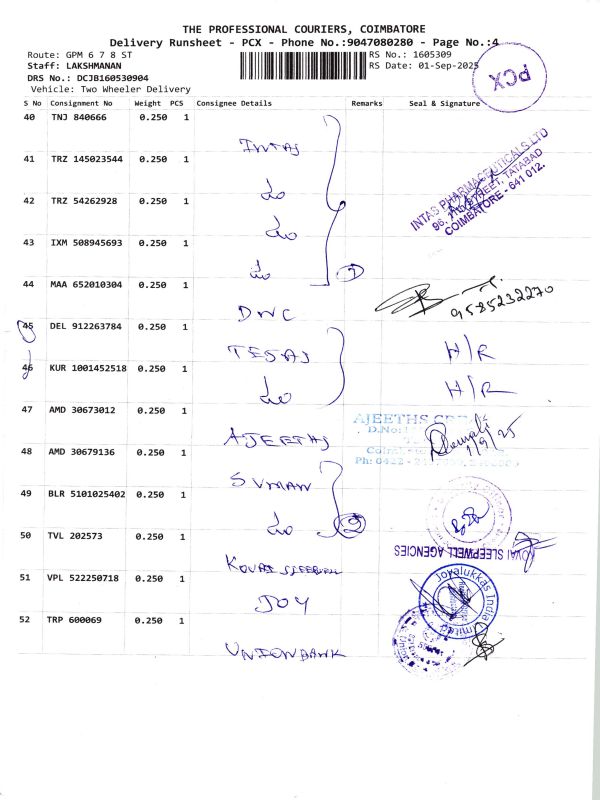 THE PROFESSIONAL COURIERS, COIMBATORE
Delivery Runsheet - PCX - Phone No.:9047080280 - Page No.:4
Route: GPM 6 7 8 ST
RS No.: 1605309
Staff: LAKSHMANAN
RS Date: 01-Sep-2025
PCX
DRS No.: DCJB160530904
Vehicle: Two Wheeler Delivery
S No Consignment No Weight PCS Consignee Details Remarks Seal & Signature
40 TNJ 840666 0.250 1
INTAS
INTAS PHARMACEUTICALS LTD
96, 7TH STREET, TATABAD
COIMBATORE - 641 012.
41 TRZ 145023544 0.250 1
do
42 TRZ 54262928 0.250 1
do
43 IXM 508945693 0.250 1
do
44 MAA 652010304 0.250 1
DNC
9585232270
45 DEL 912263784 0.250 1
TESAS
H/R
46 KUR 1001452518 0.250 1
do
H/R
47 AMD 30673012 0.250 1
AJEETHS
AJEETHS
D.No:
1/9/25
48 AMD 30679136 0.250 1
SUMAN
49 BLR 5101025402 0.250 1
do
2
50 TVL 202573 0.250 1
KOVAI SLEEPWELL
KOVAI SLEEPWELL AGENCIES
51 VPL 522250718 0.250 1
JOY
Joyalukkas India Limited
52 TRP 600069 0.250 1
UNIONBANK